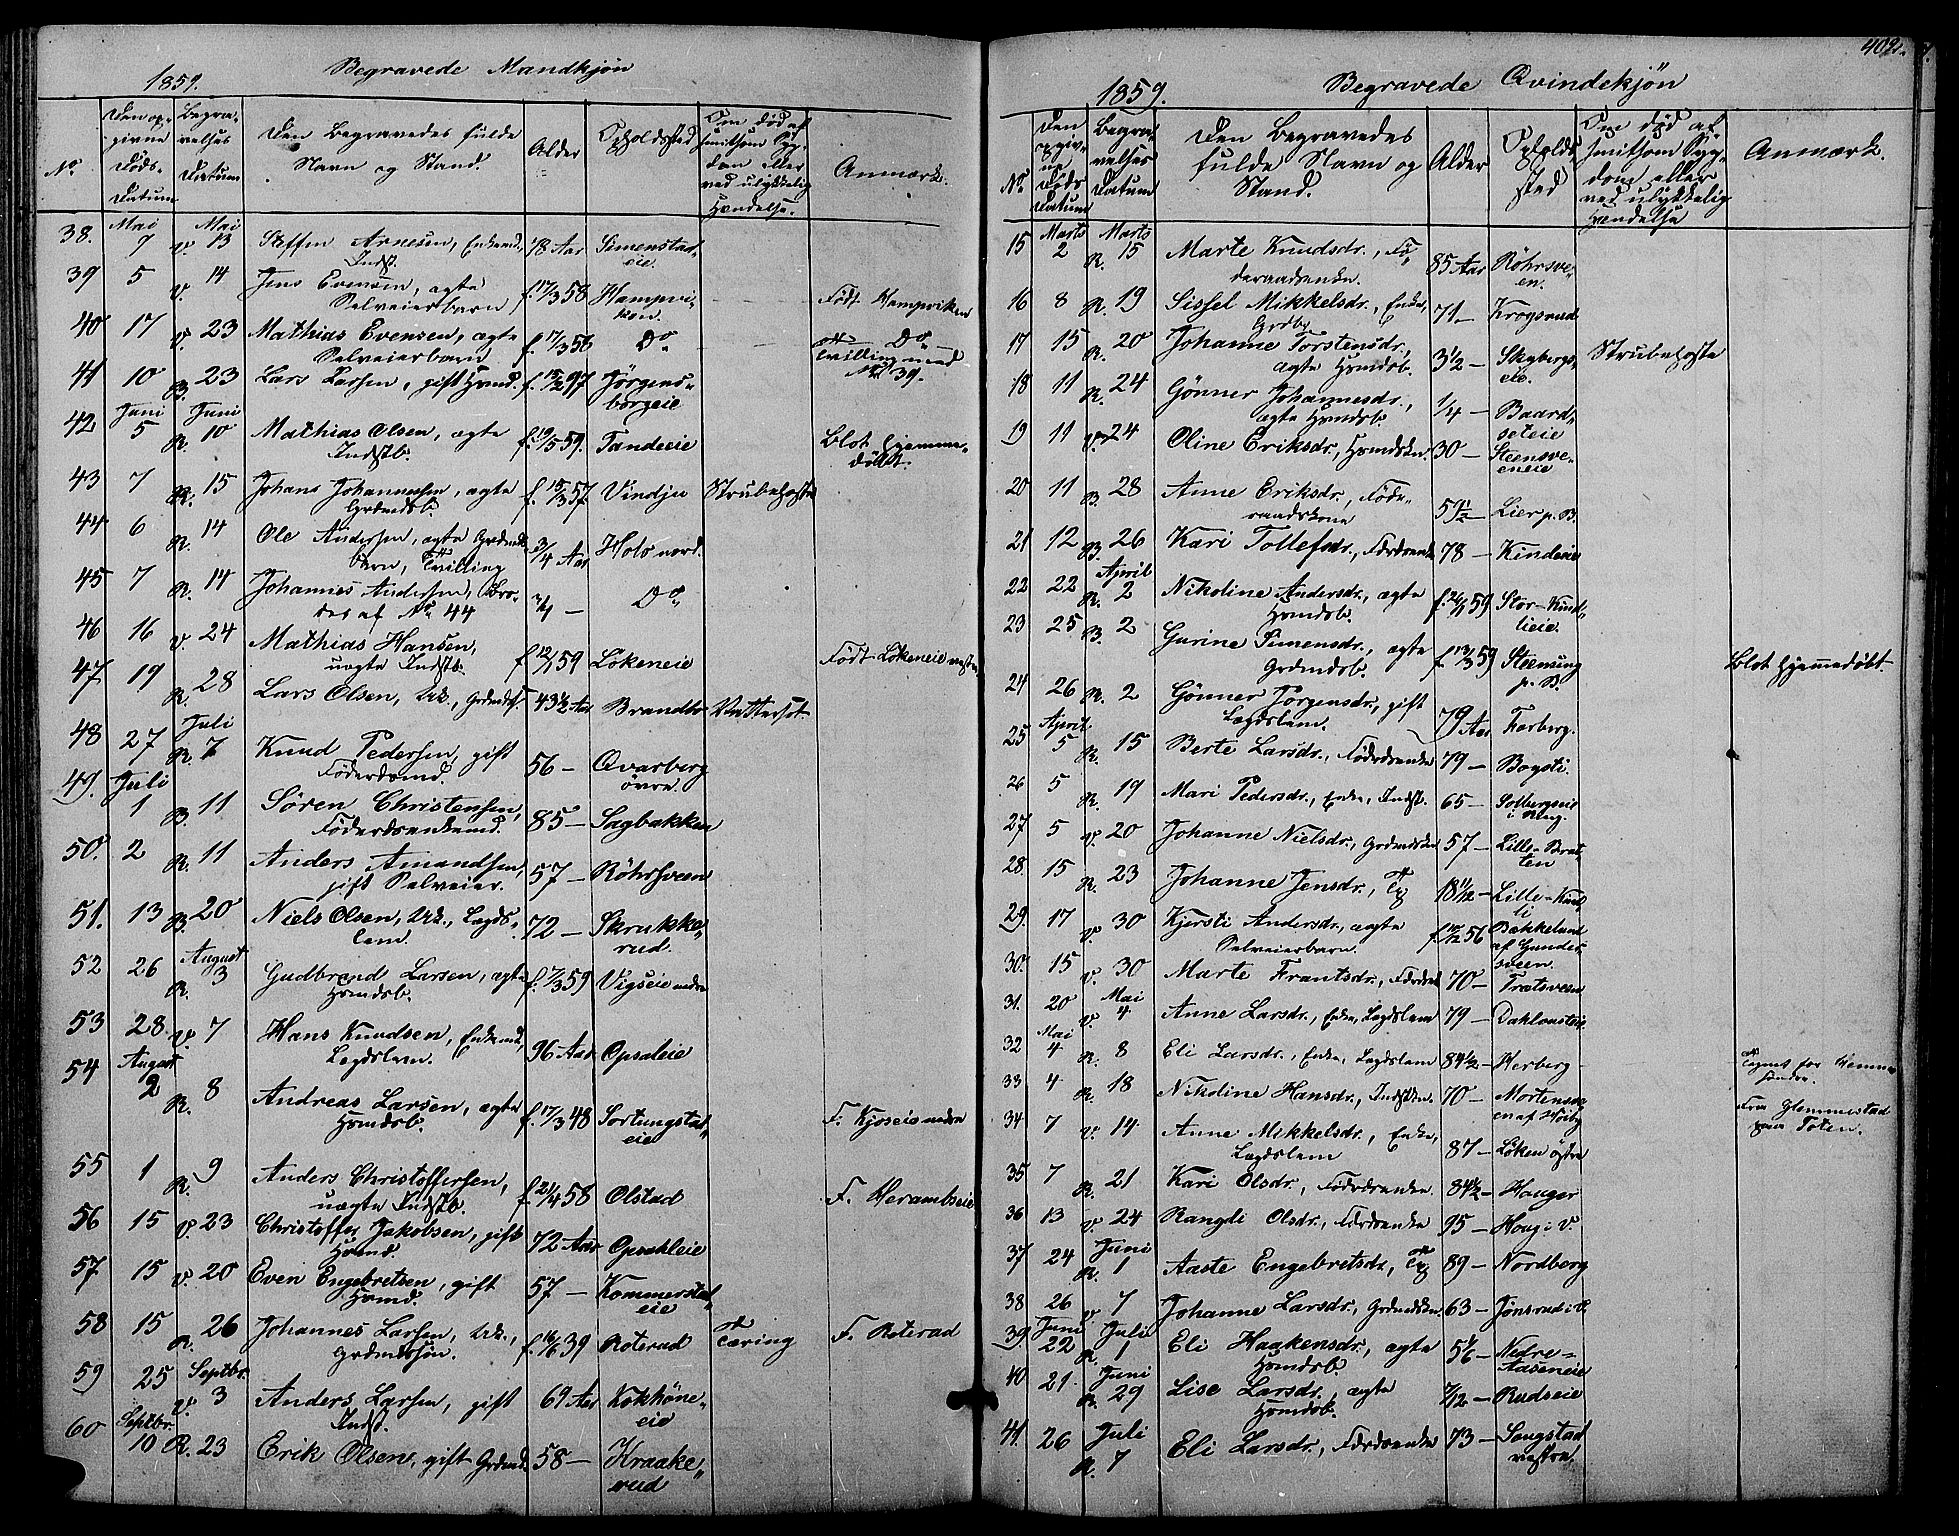 1859.
Begravede Mandkjøn
No
Den op-
givne
Døds-
Datum
Begra-
velses
Datum
Den Begravedes fulde
Navn og Stand.
Alder
Opholdssted
Om død af
smitsom Syg-
dom eller
ved ulykkelig
Hændelse.
Anmærk.
38. Mai 7 V. Mai 13 Steffen Arnesen, Enkemd, Indst. 78 Aar Simenstad-eie.
39 5 V. 14 Jens Evensen, ægte Selveierbarn f. 17/3 58 Hampvi-ken. Født Hampviken
40 17 V. 23 Mathias Evensen, ægte Selveierbarn f. 17/3 58 Do Do Tvilling med No 39.
41 10 B. 23 Lars Larsen, gift Hsmd. f. 15/2 97 Jörgens-borgeie
42 Juni 5 R. Juni 10 Mathias Olsen, ægte Indstb. f. 19/5 59. Tandeeie Blot hjemme-döbt.
43 7 R. 15 Johans Johannesen, ægte Grdmdsb. f. 15/3 57 Vindju Strubehoste
44 6 R. 14 Ole Andersen, ægte Grdmds-barn, Tvilling 3/4 Aar Holo nord.
45 7 R. 14 Johannes Andersen, Bro-der af No 44 3/4 — Do
46 16 V. 24 Mathias Hansen, uægte Indstb. f. 12/1 59 Lökeneie Født Lökeneie vestre
47 19 R. 28 Lars Olsen, Uk., Grdmdss. 43 1/2 Aar Brandbo Vattersot
48 27 R. Juli 7 Knud Pedersen, gift Föderdsmd. 56 — Qvarberg övre.
49. Juli 1 B. 11 Sören Christensen, Föderdsenkemd. 85 — Sagbakken
50. 2 R. 11 Anders Amundsen, gift Selveier. 57 — Röhrsveen
51. 13 B. 20 Niels Olsen, Uk., Lægds-lem. 72 — Skrukke-rud.
52 26 R. August 3 Gudbrand Larsen, ægte Hsmdsb. f. 7/3 59 Vigseie nedre
53 28 V. 7 Hans Knudsen, Enkemd, Lægdslem. 96 Aar Opsaleie
54 August 2 R. 8 Andreas Larsen, ægte Hsmdsb. f. 17/3 48 Sortungstad-eie F. Kjoseie nedre
55 1 R. 9 Anders Christoffersen, uægte Indstb. f. 21/4 58 Olstad F. Herambseie
56 15 V. 23 Christoffer Jakobsen, gift Hsmd. 72 Aar Opsahleie
57 15 V. 20 Even Engebretsen, gift Hsmd. 57 — Kommerstad-eie
58 15 R. 26 Johannes Larsen, Uk., Grdmdssön. f. 16/6 39 Roterud Tæring F. Roterud
59 25 V. Septbr. 3 Anders Larsen, gift Indst. 69 Aar Kokhöne-eie
60 Septbr. 10 R. 23 Erik Olsen, gift Grdmd. 58 — Kraake-rud
1859.
Begravede Qvindekjön
402.
No
Den
opgiv-
ne
Döds
Datum
Begra-
velses
Datum
Den Begravedes
fulde Navn og
Stand.
Alder
Opholds
sted
Om död af
smitsom Syg-
dom eller
ved ulykkelig
Hændelse
Anmærk.
15 Marts 2 R. Marts 15 Marte Knudsdr., Fö-deraadsenke. 85 Aar Röhrsve-en.
16 8 R. 19 Sissel Mikkelsdr., Enke, 71 — Krogsrud
17 15 R. 20 Johanne Torstensdr., ægte Hsmdsb. 3 1/2 — Skybergs-eie. Strubehoste
18 11 R. 24 Gönner Johannesdr., ægte Hsmdsb. 1/4 — Baard-seteie
19 11 V. 24 Oline Eriksdr., Hsmdskn. 30 — Steensve-eneie
20 11 B. 28 Anne Eriksdr., Föde-raadskone Lier p. B.
21 12 B. 26 Kari Tollefsdr., Fdrdsenke 78 — Kindeie
22 22 R. April 2 Nikoline Andersdr., ægte Hsmdsb. f. 26/1 59 Stor-Kind-lieie.
23 25 B. 2 Gurine Simensdr., ægte Grdmdsb. f. 13/3 59 p. B. Blot hjemmedöbt
24 26 R. 2 Gönner Jörgensdr., gift Lægdslem. 79 Aar Farberg.
25 April 5 R. 15 Berte Larsdr., Föderdsenke 79 — Bogsti.
26 5 R. 19 Mari Pedersdr., Enke, Indst. 65 — Solbergseie i Ring.
27 5 V. 20 Johanne Nielsdr., Grdmdskn 57 — Lille-Brat-ten
28. 15 R. 23 Johanne Jensdr., Tj. 18 1/2 — Lille-Kind-li
29. 17 V. 30 Kjersti Andersdr., ægte Selveierbarn. Bakkelund af Gunders-sveen.
30. 15 V. 30 Marte Frantsdr., 70 — Trætsveen
31. 20 V. Mai 4 Anne Larsdr., Enke, Lægdslem 79 — Daklousteie
32 Mai 4 R. 8 Eli Larsdr., Enke, Lægdslem 84 1/2 — Herberg
33 4 R. 18 Nikoline Hansdr., Indstkn. 70 — Mortensve-en af
34 7 V. 14 Anne Mikkelsdr., Enke, Lægdslem 87 — Löken östre Fra Glemmestad paa Toten.
35 7 R. 21 Kari Olsdr., Föderdsenke. 84 1/2 — Hauger
36 13 V. 24 Rangdi Olsdr., Fdrdsenke 95 — Houg i V.
37 24 R. Juni 1 Aaste Engebretsdr., Tj. 89 — Nordborg
38 26 V. 7 Johanne Larsdr., Grdmdskn. 63 — Jönsrud i V.
39. Juni 22 R. Juli 1 Eli Haakensdr., ægte Hsmdsb. 5 1/6 — Nedre-Aaseneie
40 21. R. Juni 29 Lise Larsdr., ægte Hsmdsb. 7/12 — Rudseie
41. 26 R. Juli 7 Eli Larsdr., Fdrdsenke 73 — Sougstad vestre.